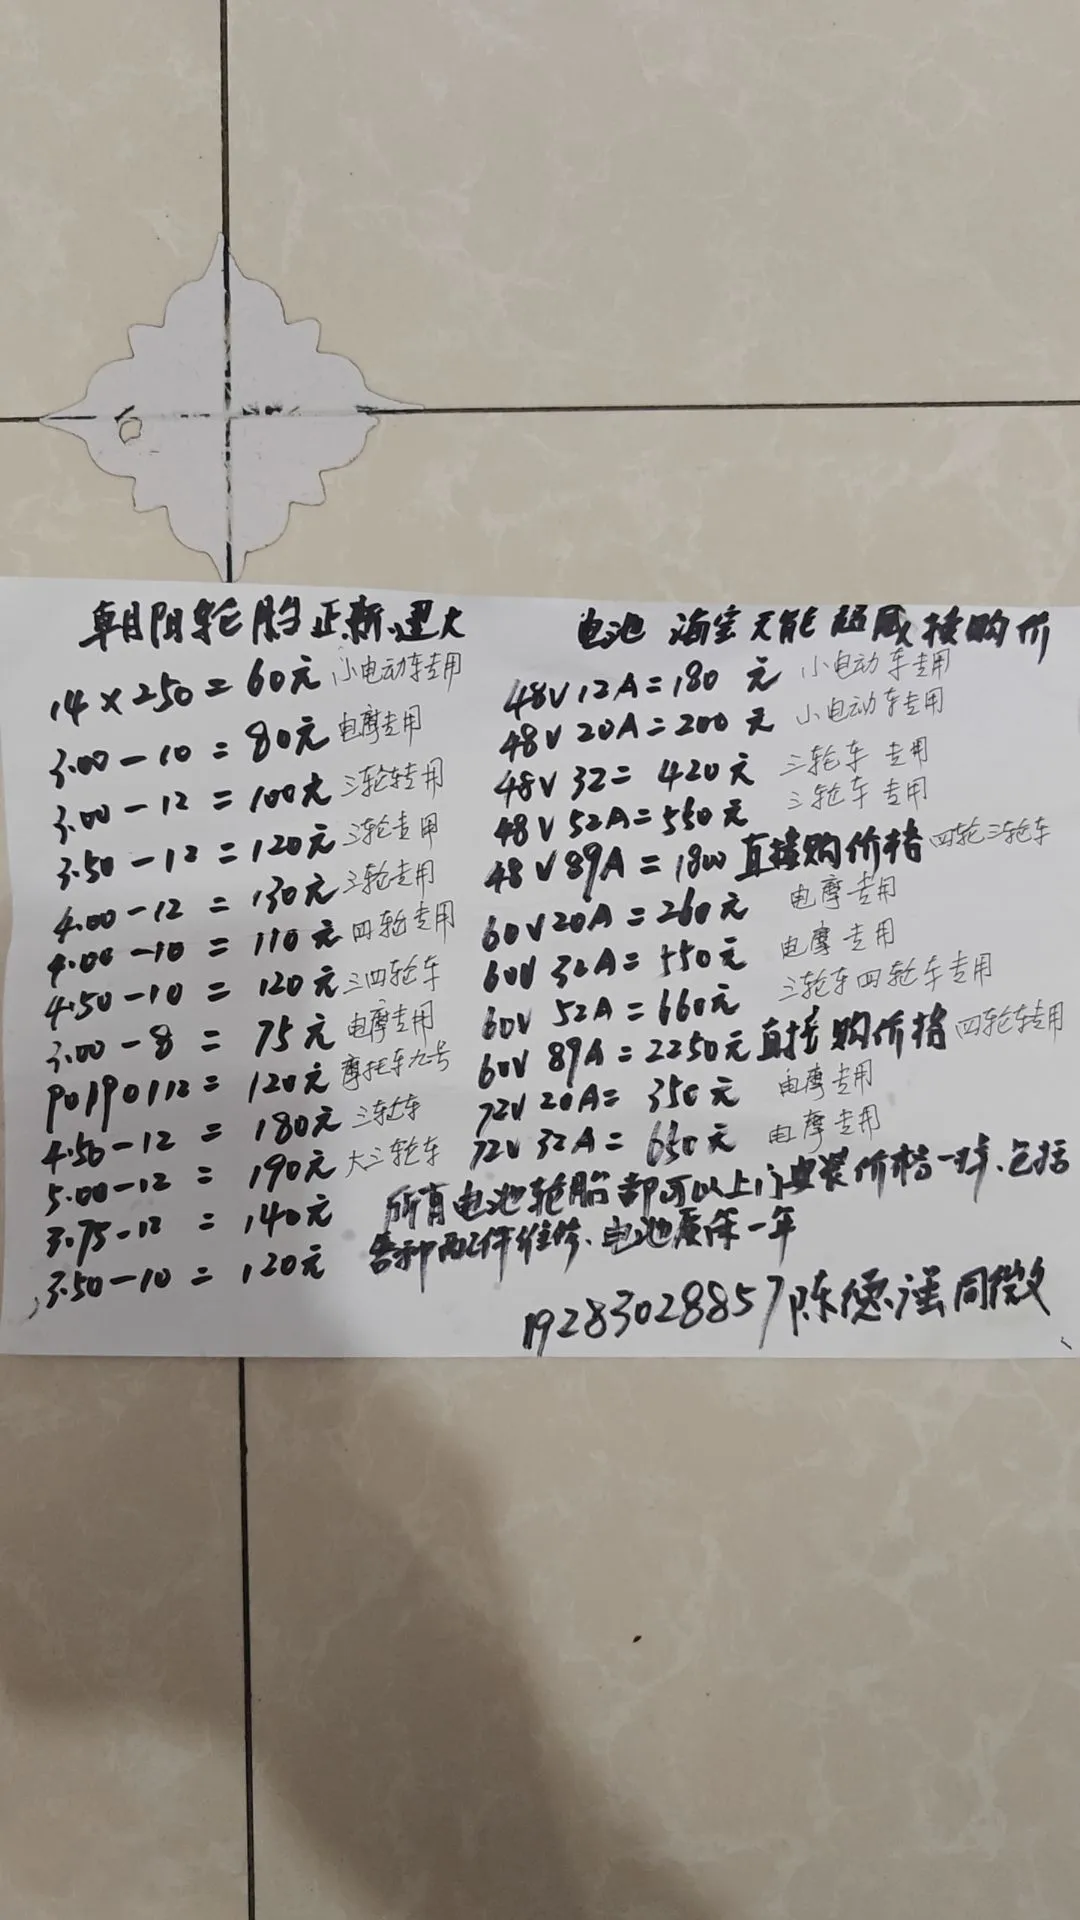 朝阳轮胎正新.建大
14×250=60元 小电动车专用
3.00-10=80元 电摩专用
3.00-12=100元 三轮车专用
3.50-12=120元 三轮专用
4.00-12=130元 三轮专用
4.00-10=110元 四轮专用
4.50-10=120元 三四轮车
3.00-8=75元 电摩专用
90190112=120元 摩托车九号
4.50-12=180元 三轮车
5.00-12=190元 大三轮车
3.75-12=140元
3.50-10=120元
电池 海宝天能超威换购价
48V12A=180元 小电动车专用
48V20A=200元 小电动车专用
48V32=420元 三轮车专用
48V52A=550元 三轮车专用
48V89A=1800直接购价格 四轮三轮车
60V20A=260元 电摩专用
60V32A=550元 电摩专用
60V52A=660元 三轮车四轮车专用
60V89A=2250元直接购价格 四轮车专用
72V20A=350元 电摩专用
72V32A=650元 电摩专用
所有电池轮胎都可以上门安装价格一样、包括
各种配件维修、电池质保一年
19283028857陈德谣同微